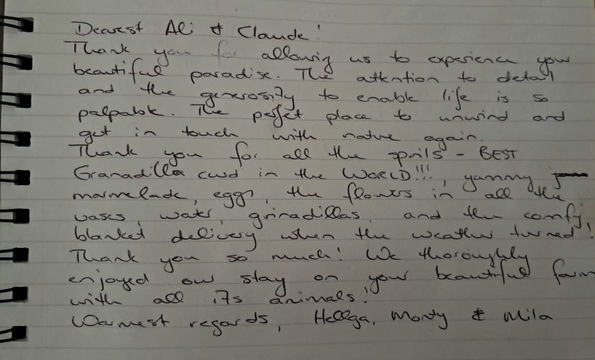 Dearest Ali & Claude!
Thank you for allowing us to experience your
beautiful paradise. The attention to detail
and the generosity to enable life is so
palpable. The perfect place to unwind and
get in touch with nature again.
Thank you for all the spoils - BEST
Granadilla curd in the WORLD!!!, yummy
marmelade, eggs, the flowers in all the
vases, water, grinadillas, and the comfy
blanket delivery when the weather turned!
Thank you so much! We thoroughly
enjoyed our stay on your beautiful farm
with all its animals!
Warmest regards, Hellga, Monty & Mila